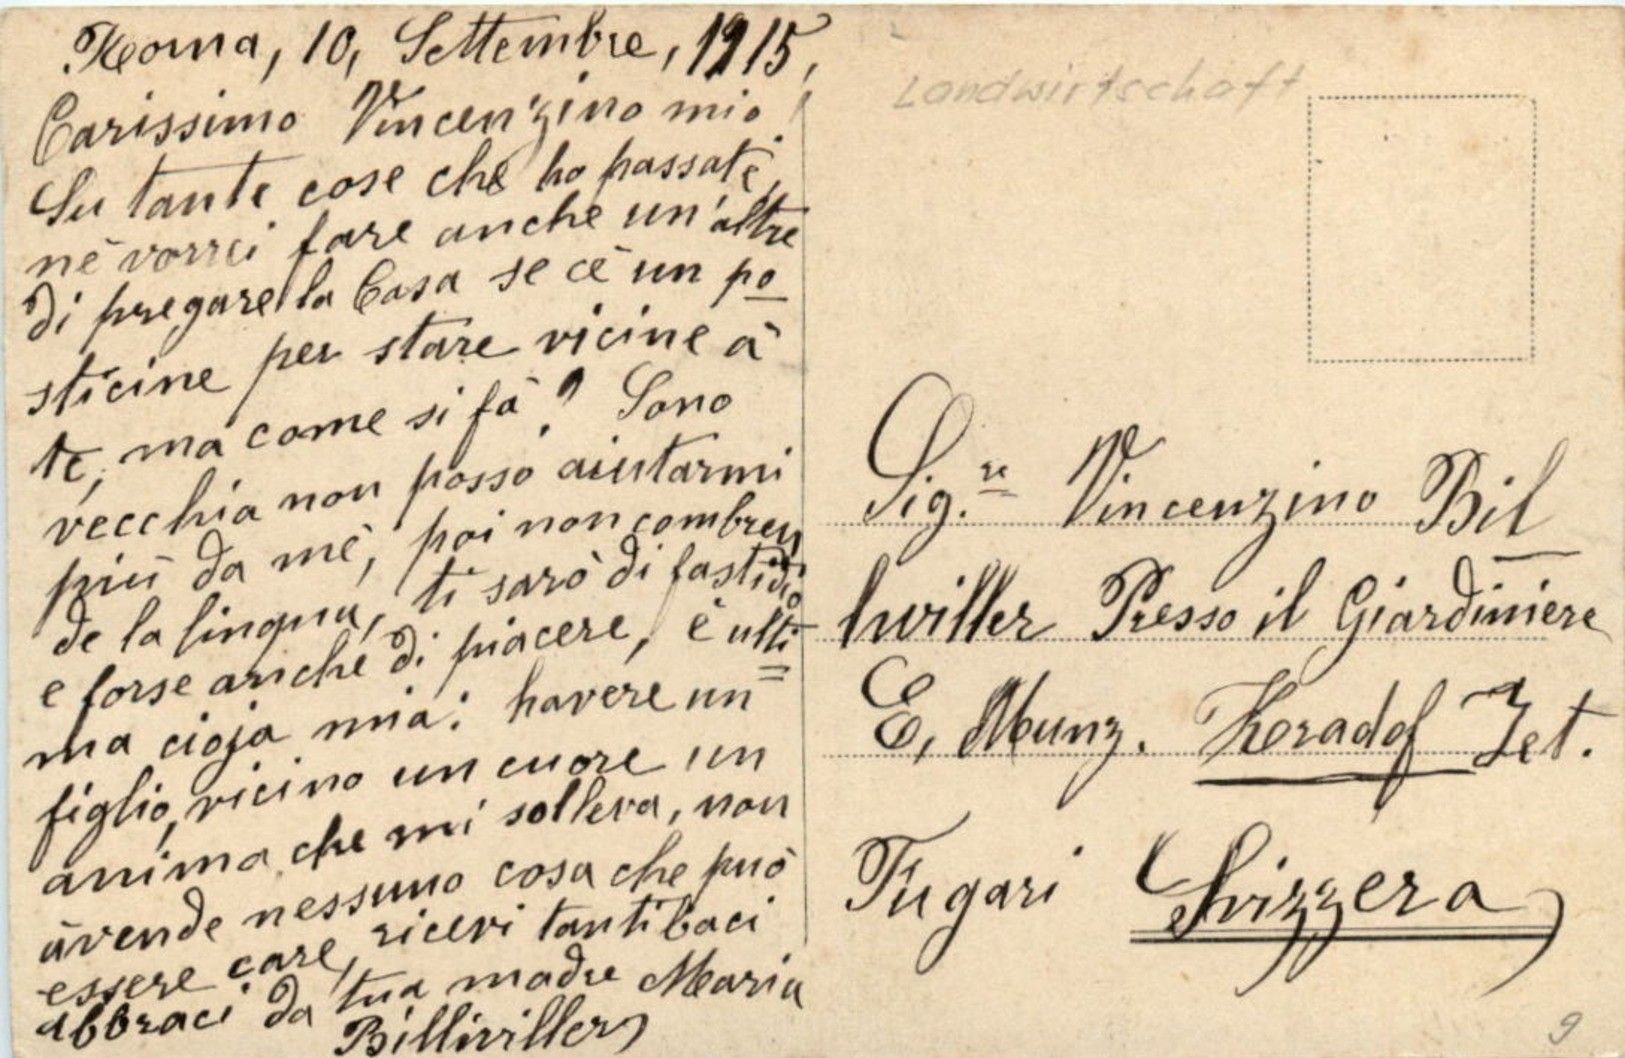 Roma, 10, Settembre, 1915,
Carissimo Vincenzino mio!
Su tante cose che ho passate,
nè vorrei fare anche un'altre
di pregare la Casa se cè un po
sticine per stare vicine à
te, ma come si fà? Sono
vecchia non posso aiutarmi
più da mè, poi non combren
de la lingua, ti sarò di fastidio
e forse anche di piacere, è ulti
ma cioja mia: havere un
figlio, vicino un cuore un
anima che mi solleva, non
àvende nessuno cosa che può
essere care, ricevi tanti baci
abbraci da tua madre Maria
Billwiller
Landwirtschaft
Sig.re Vincenzino Bil
lwiller Presso il Giardiniere
E, Munz.
Fugari Svizzera
9